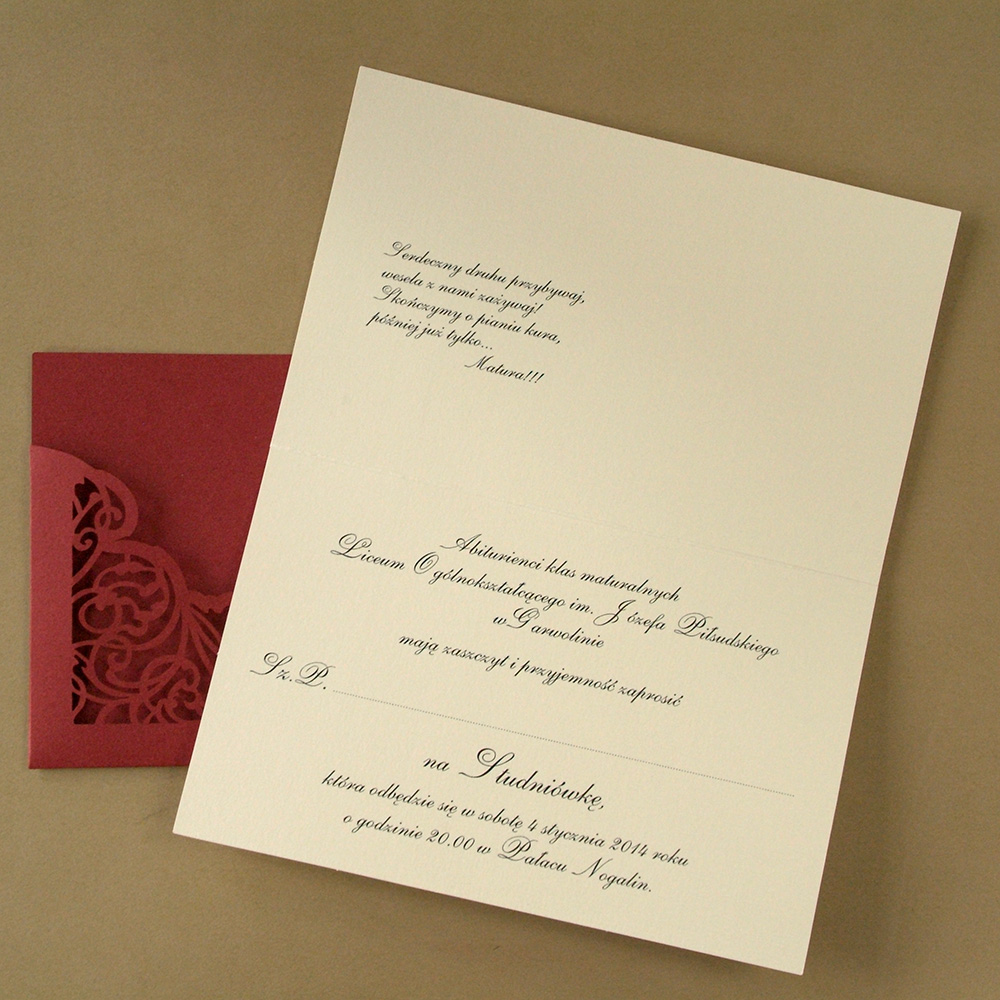 Serdeczny druhu przybywaj,
wesela z nami zażywaj!
Skończymy o pianiu kura,
później już tylko...
Matura!!!
Abiturienci klas maturalnych
Liceum Ogólnokształcącego im. Józefa Piłsudskiego
w Garwolinie
mają zaszczyt i przyjemność zaprosić
Sz.P. ........................................................................
na Studniówkę,
która odbędzie się w sobotę 4 stycznia 2014 roku
o godzinie 20.00 w Pałacu Nogalin.